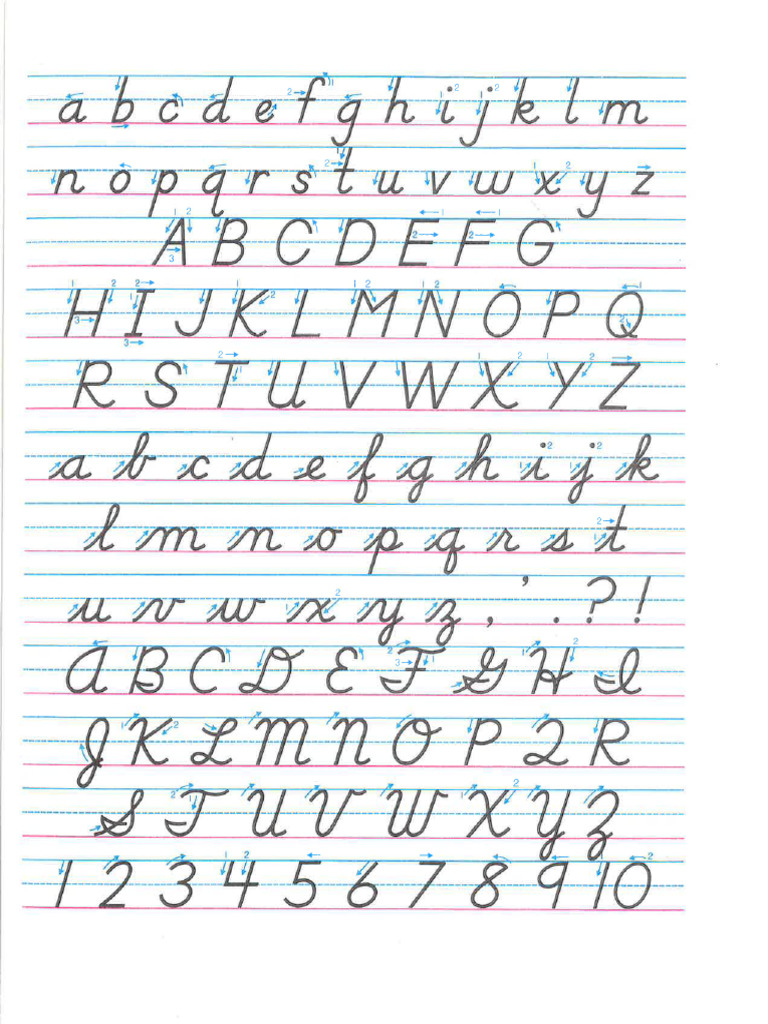 a b c d e f g h i j k l m
n o p q r s t u v w x y z
A B C D E F G
H I J K L M N O P Q
R S T U V W X Y Z
a b c d e f g h i j k
l m n o p q r s t
u v w x y z , ' . ? !
A B C D E F G H I
J K L M N O P Q R
S T U V W X Y Z
1 2 3 4 5 6 7 8 9 10